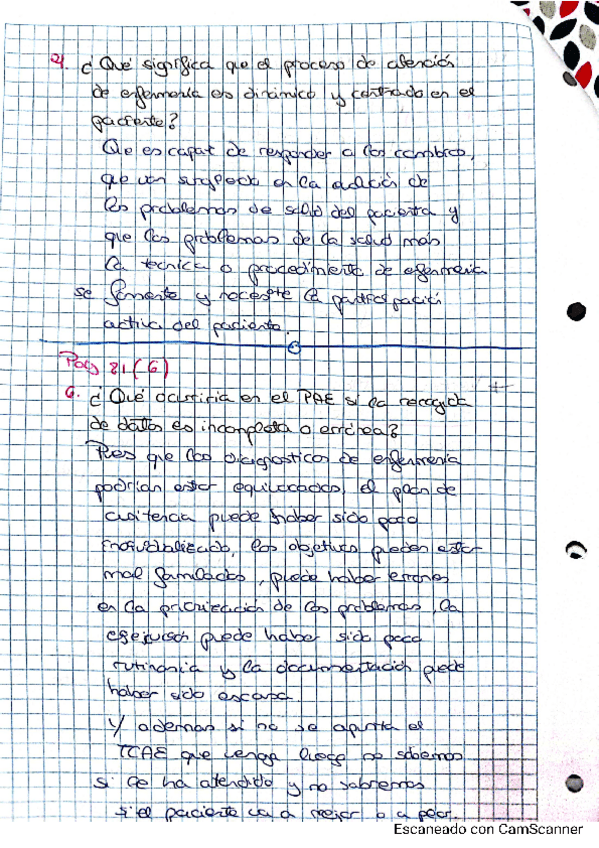 4. ¿Qué significa que el proceso de atención
de enfermería es dinámico y centrado en el
paciente?
Que es capaz de responder a los cambios,
que van surgiendo en la evolución de
los problemas de salud del paciente y
que los problemas de la salud más
la tecnica o procedimiento de enfermeria
se fomente y necesite la participación
activa del paciente.
Pag 21 (6)
6. ¿Qué ocurriria en el PAE si la recogida
de datos es incompleta o errónea?
Pues que los diagnosticos de enfermeria
podrían estar equivocados, el plan de
asistencia puede haber sido poco
individualizado, los objetivos pueden estar
mal formulados, puede haber errores
en la priorización de los problemas, la
puede haber sido poco
rutinaria y la documentación puede
haber sido escasa.
Y ademas si no se apunta el
TCAE que venga luego no sabemos
si se ha atendido y no sabremos
si el paciente va a mejor o a peor.
Escaneado con CamScanner